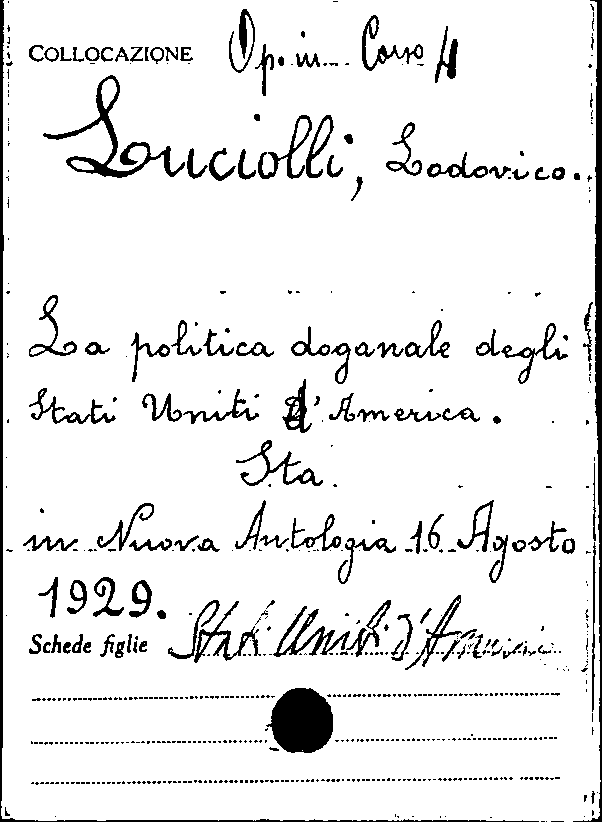 COLLOCAZIONE Op. in Corso 4
Luciolli, Lodovico.
La politica doganale degli
Stati Uniti d'America.
Sta
in Nuova Antologia 16 Agosto
1929.
Schede figlie Stati Uniti d'America